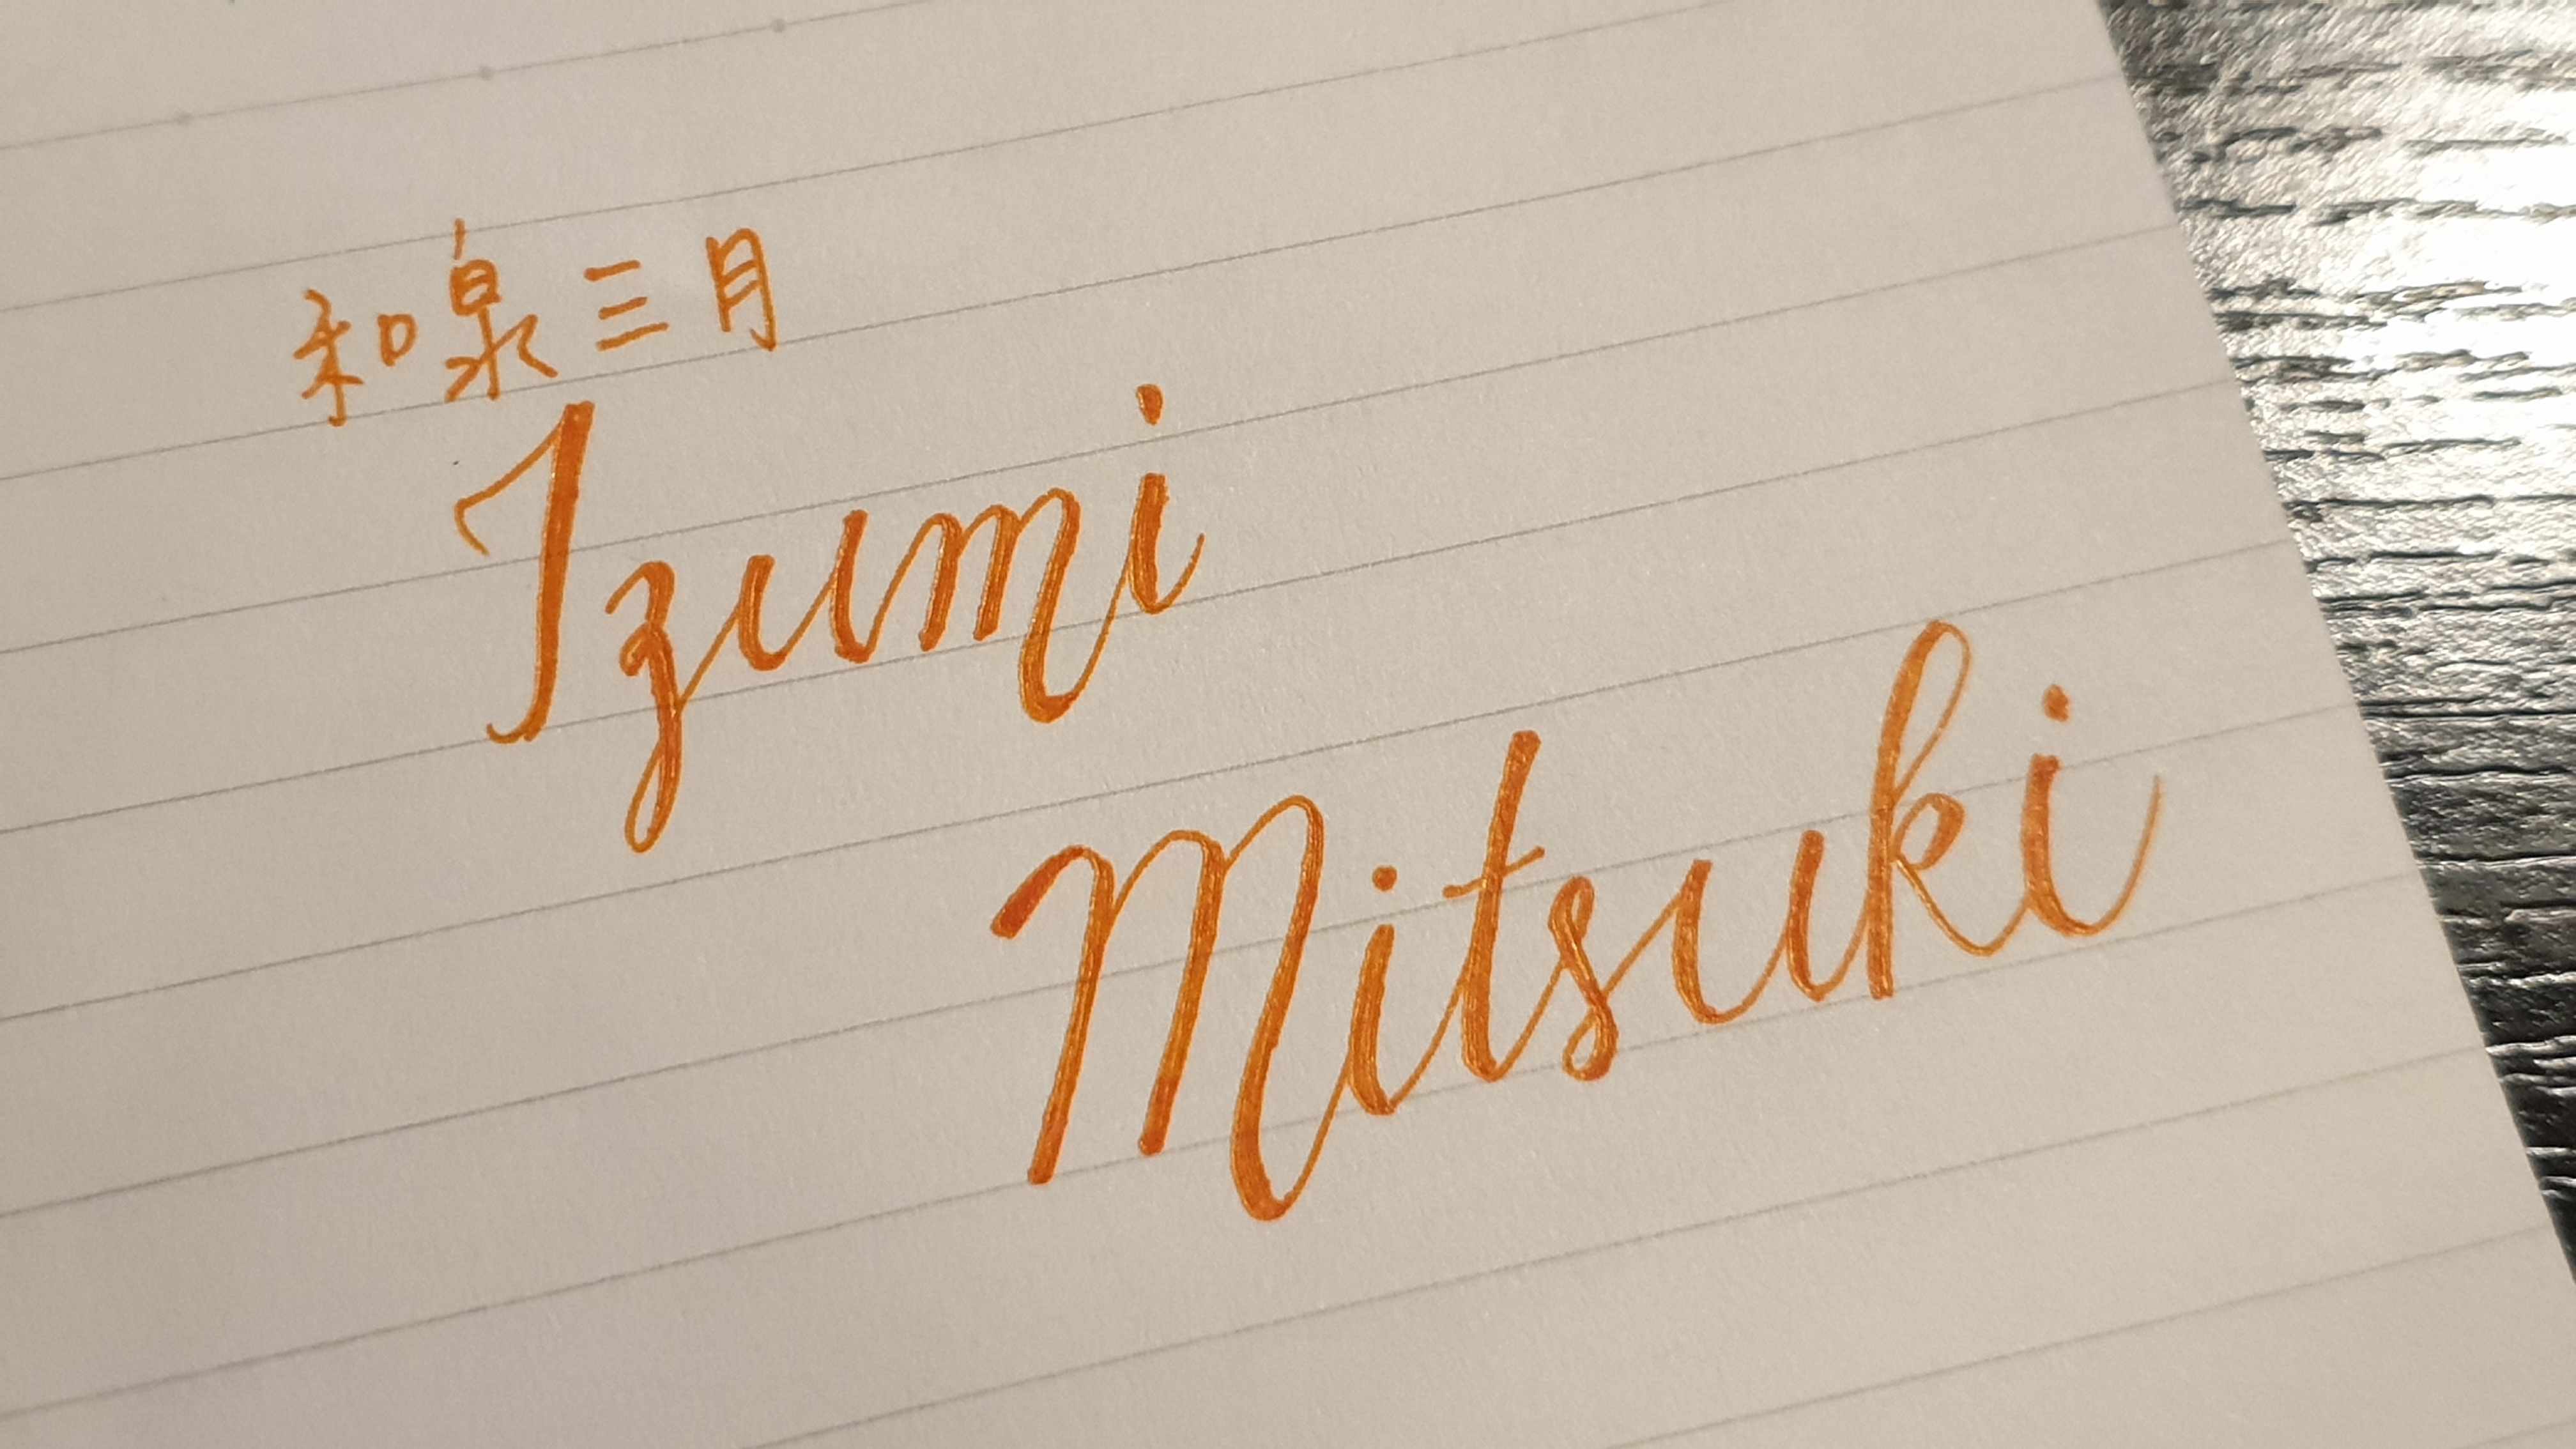 和泉三月
Izumi
Mitsuki